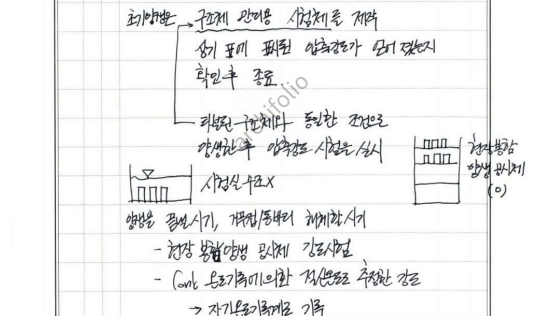 초기양생은 → 구조체 관리용 시험체를 제작
상기 표에 표시된 압축강도가 얻어졌는지
확인 후 종료.
타설된 구조체와 동일한 조건으로
양생한 후 압축강도 시험을 실시
시험실 수조 X
현장봉함
양생 공시체
(O)
양생을 끝낼시기, 거푸집/동바리 해체할시기
- 현장 봉함양생 공시체 강도시험
- Conc 온도기록에 의한 적산온도로 추정한 강도
→ 자기온도기록계로 기록
archifolio